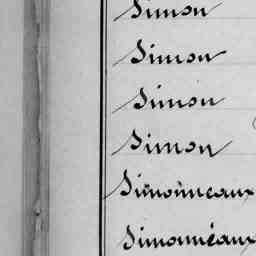 Simon
Simon
Simon
Simon
Simonneaux
Simonnéaux